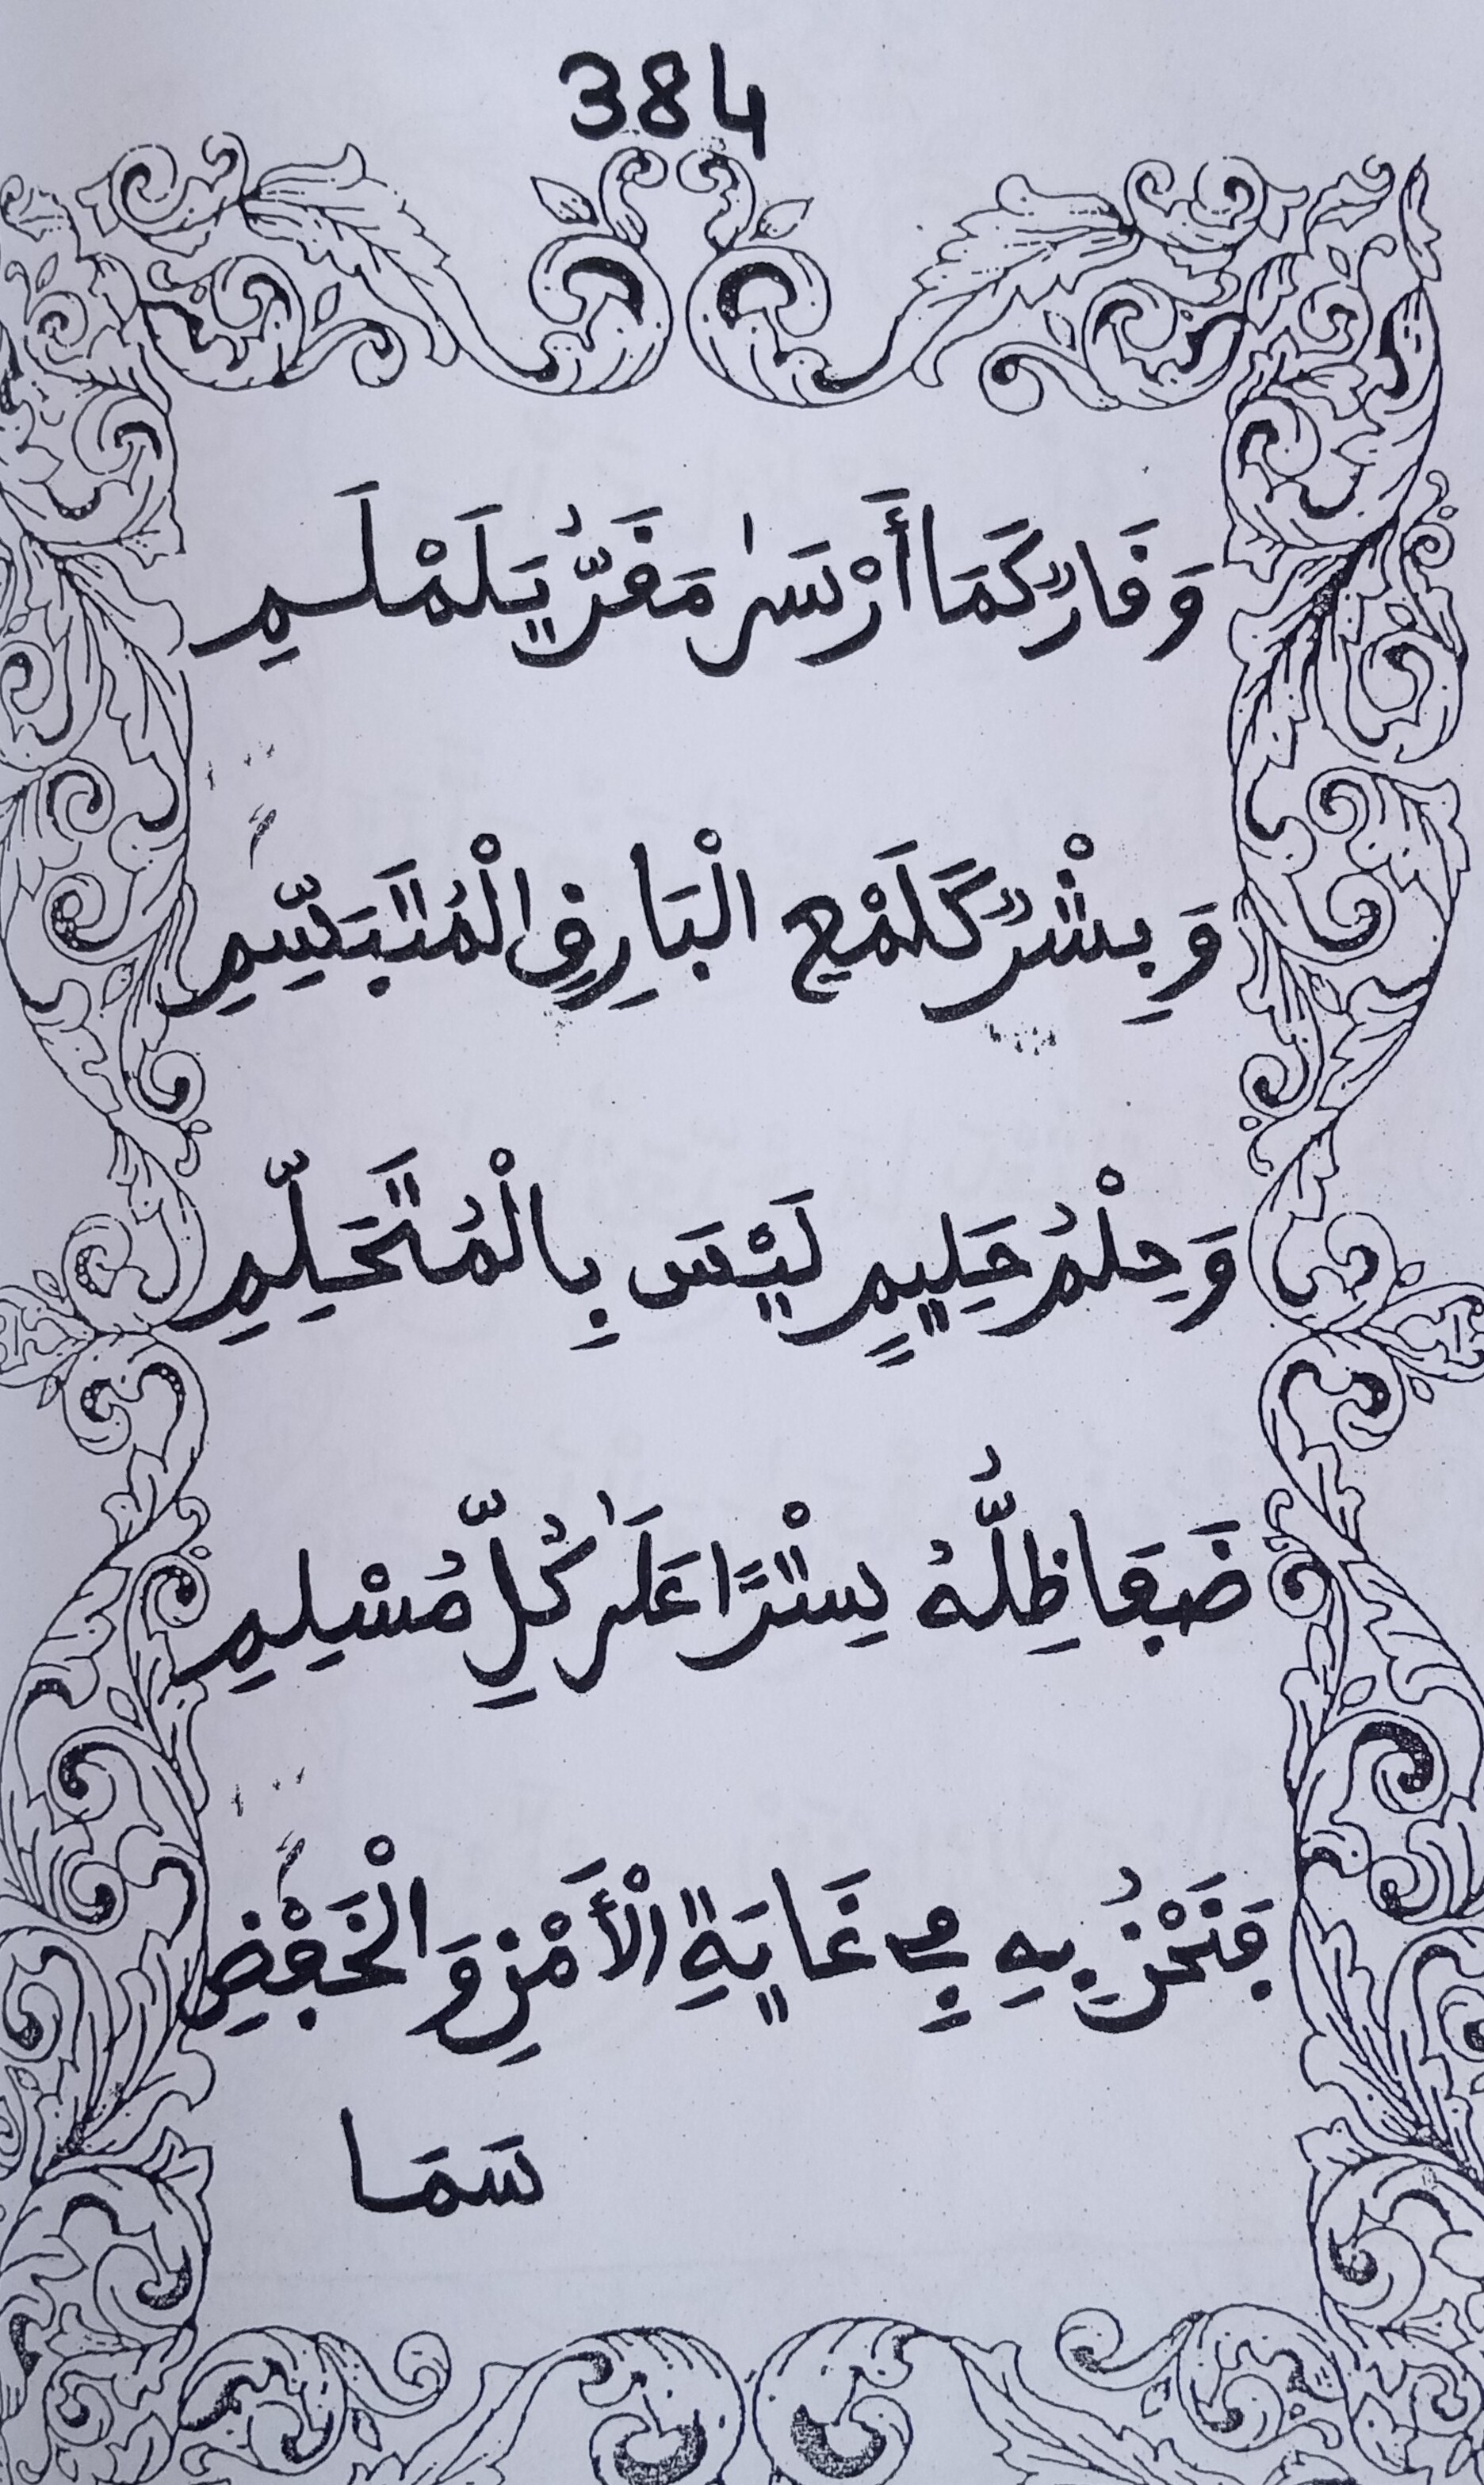 384
وَفَارٌ كَمَا أَرْسَىٰ مَقَرُّ يَلَمْلَمِ
وَبِشْرٌ كَلَمْعِ الْبَارِقِ الْمُتَبَسِّمِ
وَحِلْمُ حَلِيمٍ لَيْسَ بِالْمُتَحَلِّمِ
ضَفَا ظِلُّهُ سِتْرًا عَلَىٰ كُلِّ مُسْلِمِ
فَنَحْنُ بِهِ فِي غَايَةِ الْأَمْنِ وَالْخَفْضِ
سَمَا